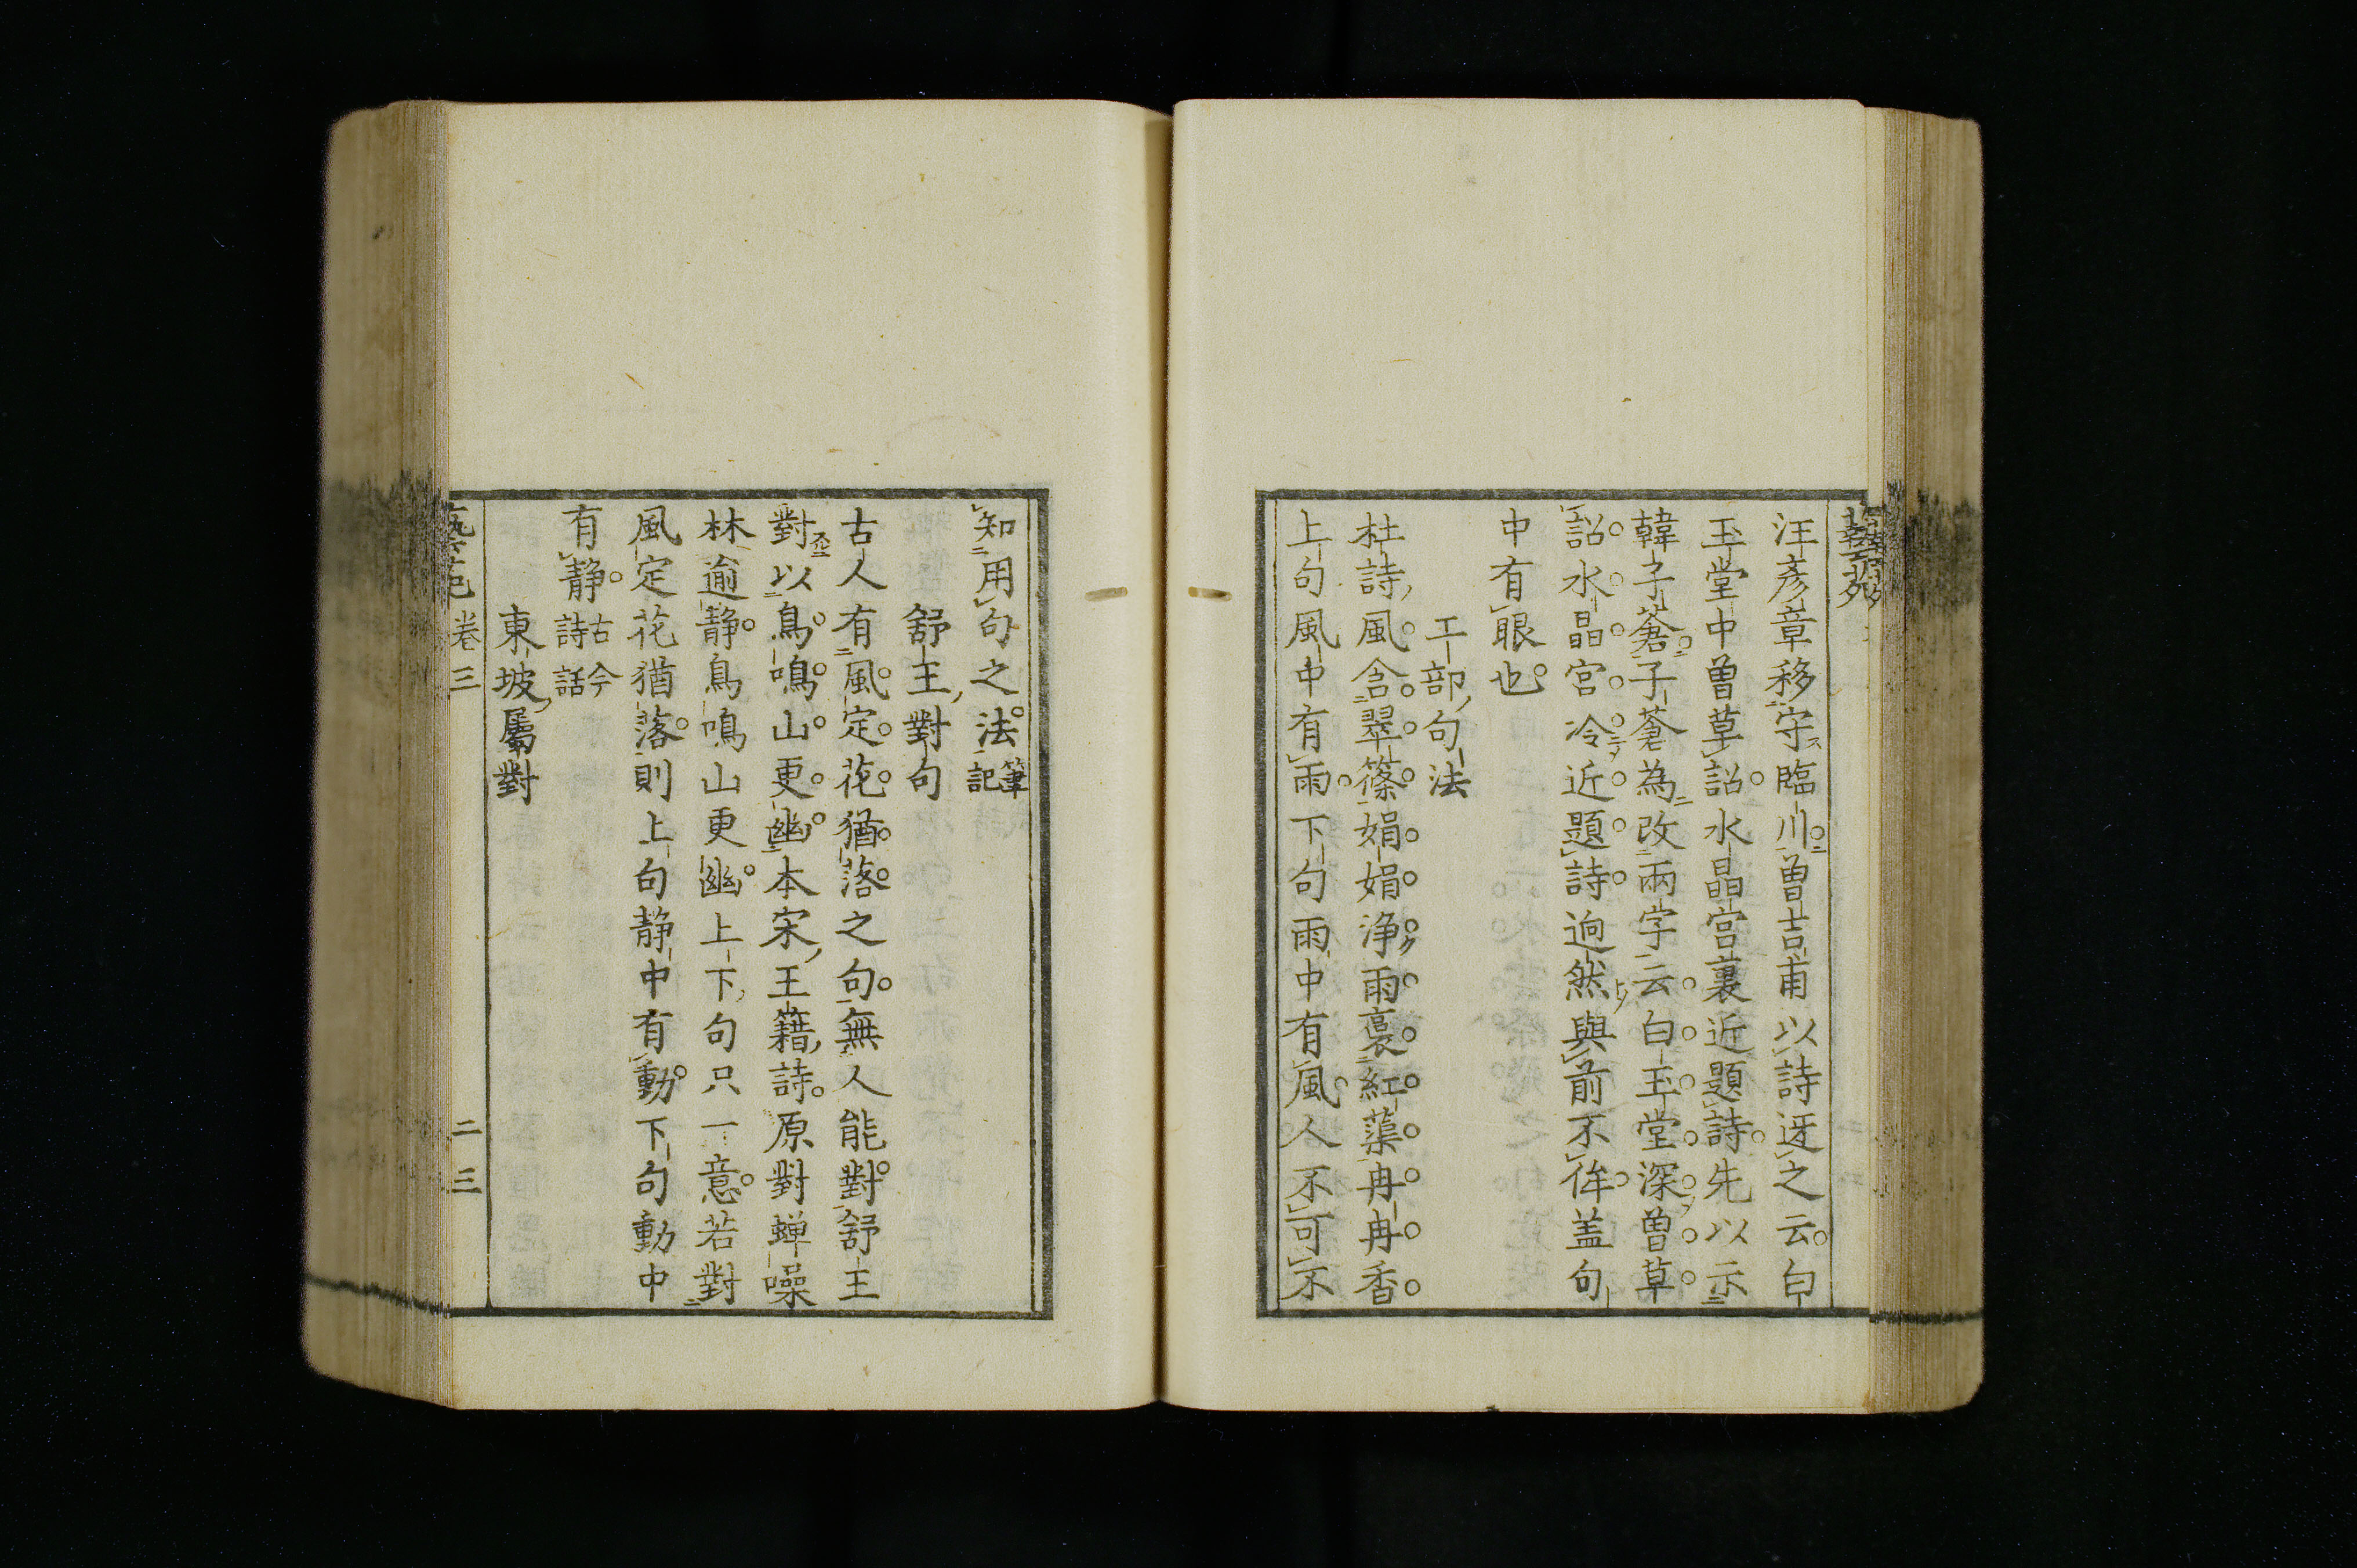 藝苑
汪彦章移守臨川曽吉甫以詩迓之云白
玉堂中曽草詔水晶宮裏近題詩先以示
韓子蒼子蒼為改兩字云白玉堂深曽草
詔水晶宮冷近題詩逈然與前不侔盖句
中有眼也
工部句法
杜詩風含翠篠娟娟浄雨裛紅蕖冉冉香
上句風中有雨下句雨中有風人不可不
知用句之法筆記
舒王對句
古人有風定花猶落之句無人能對舒王
對以鳥鳴山更幽本宋王籍詩原對蝉噪
林逾静鳥鳴山更幽上下句只一意若對
風定花猶落則上句静中有動下句動中
有静古今詩話
東坡屬對
藝苑 卷三 二三